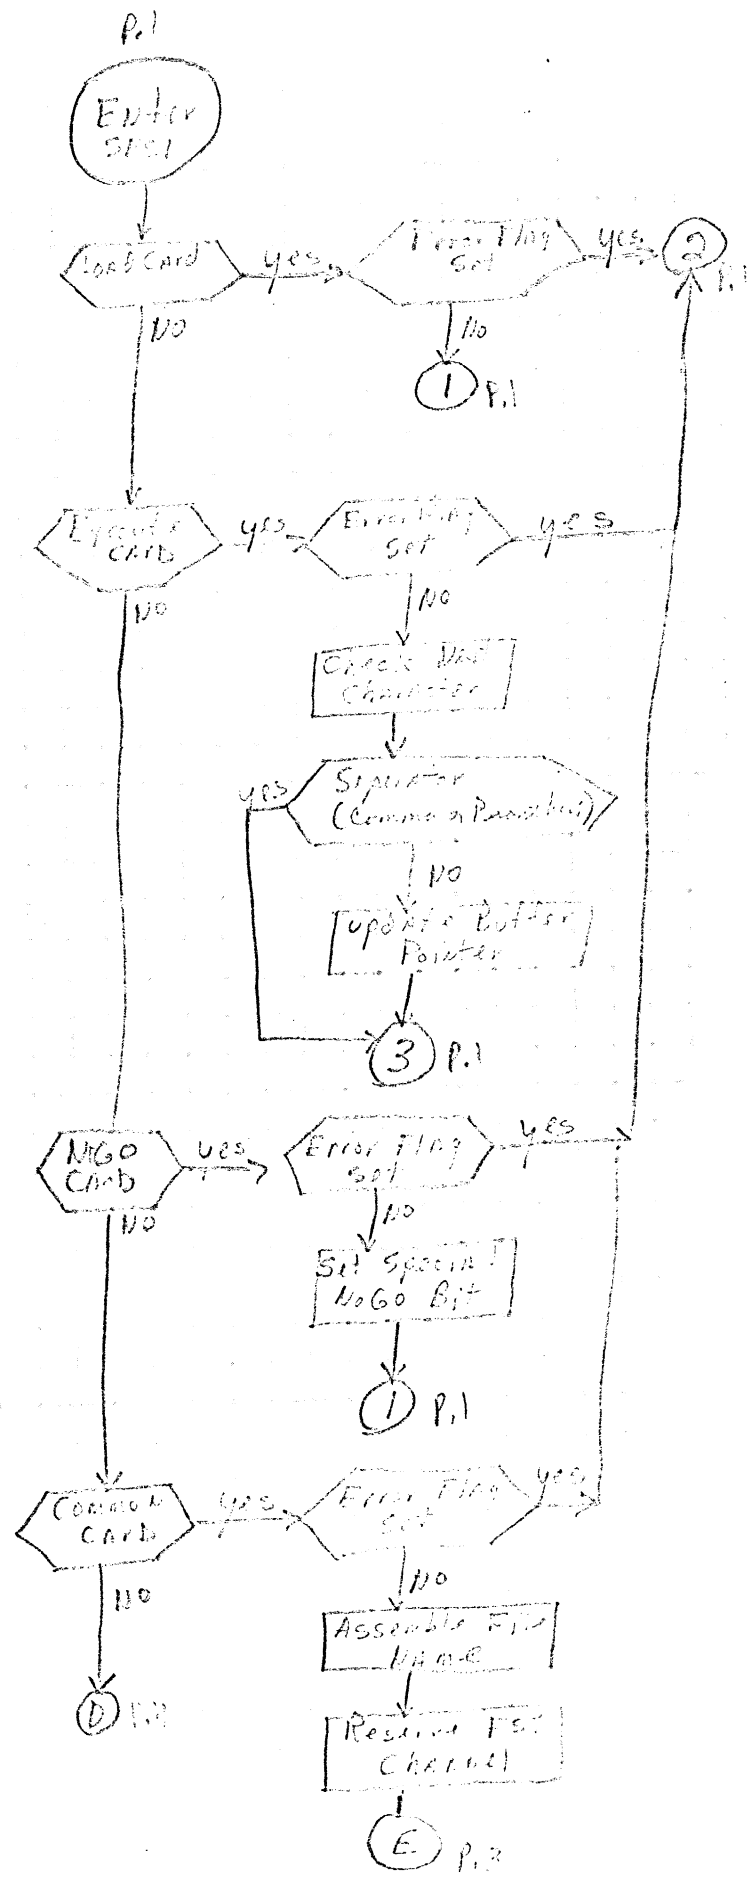 P.1
Enter
LOAD CARD
yes
Error Flag
Set
yes
2
P.1
NO
No
1
P.1
Execute
CARD
yes
Error Flag
Set
yes
NO
NO
Check
Character
yes
(Comma or
NO
Update Buffer
Pointer
3
P.1
NoGO
CArD
yes
Error Flag
Set
yes
NO
NO
Set Special
NoGO Bit
1
P.1
Common
CArD
yes
Error Flag
Set
yes
NO
NO
Assemble File
NAme
D
Reserve
Channel
E
P.3